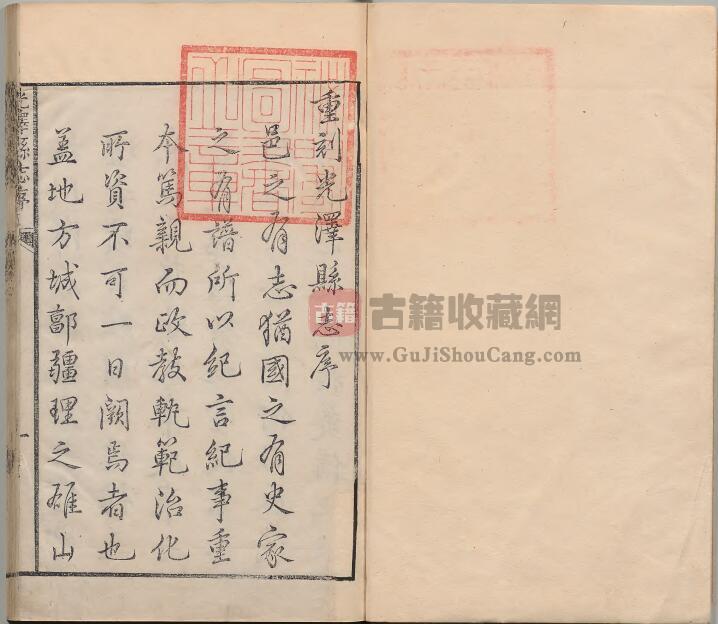 重刻光澤縣志序
邑之有志猶國之有史家
之有譜所以紀言紀事重
本篤親而政教軌範治化
所資不可一日闕焉者也
盖地方城鄙疆理之雄山
光澤縣志序
一
古籍
古籍收藏網
www.GuJiShouCang.com